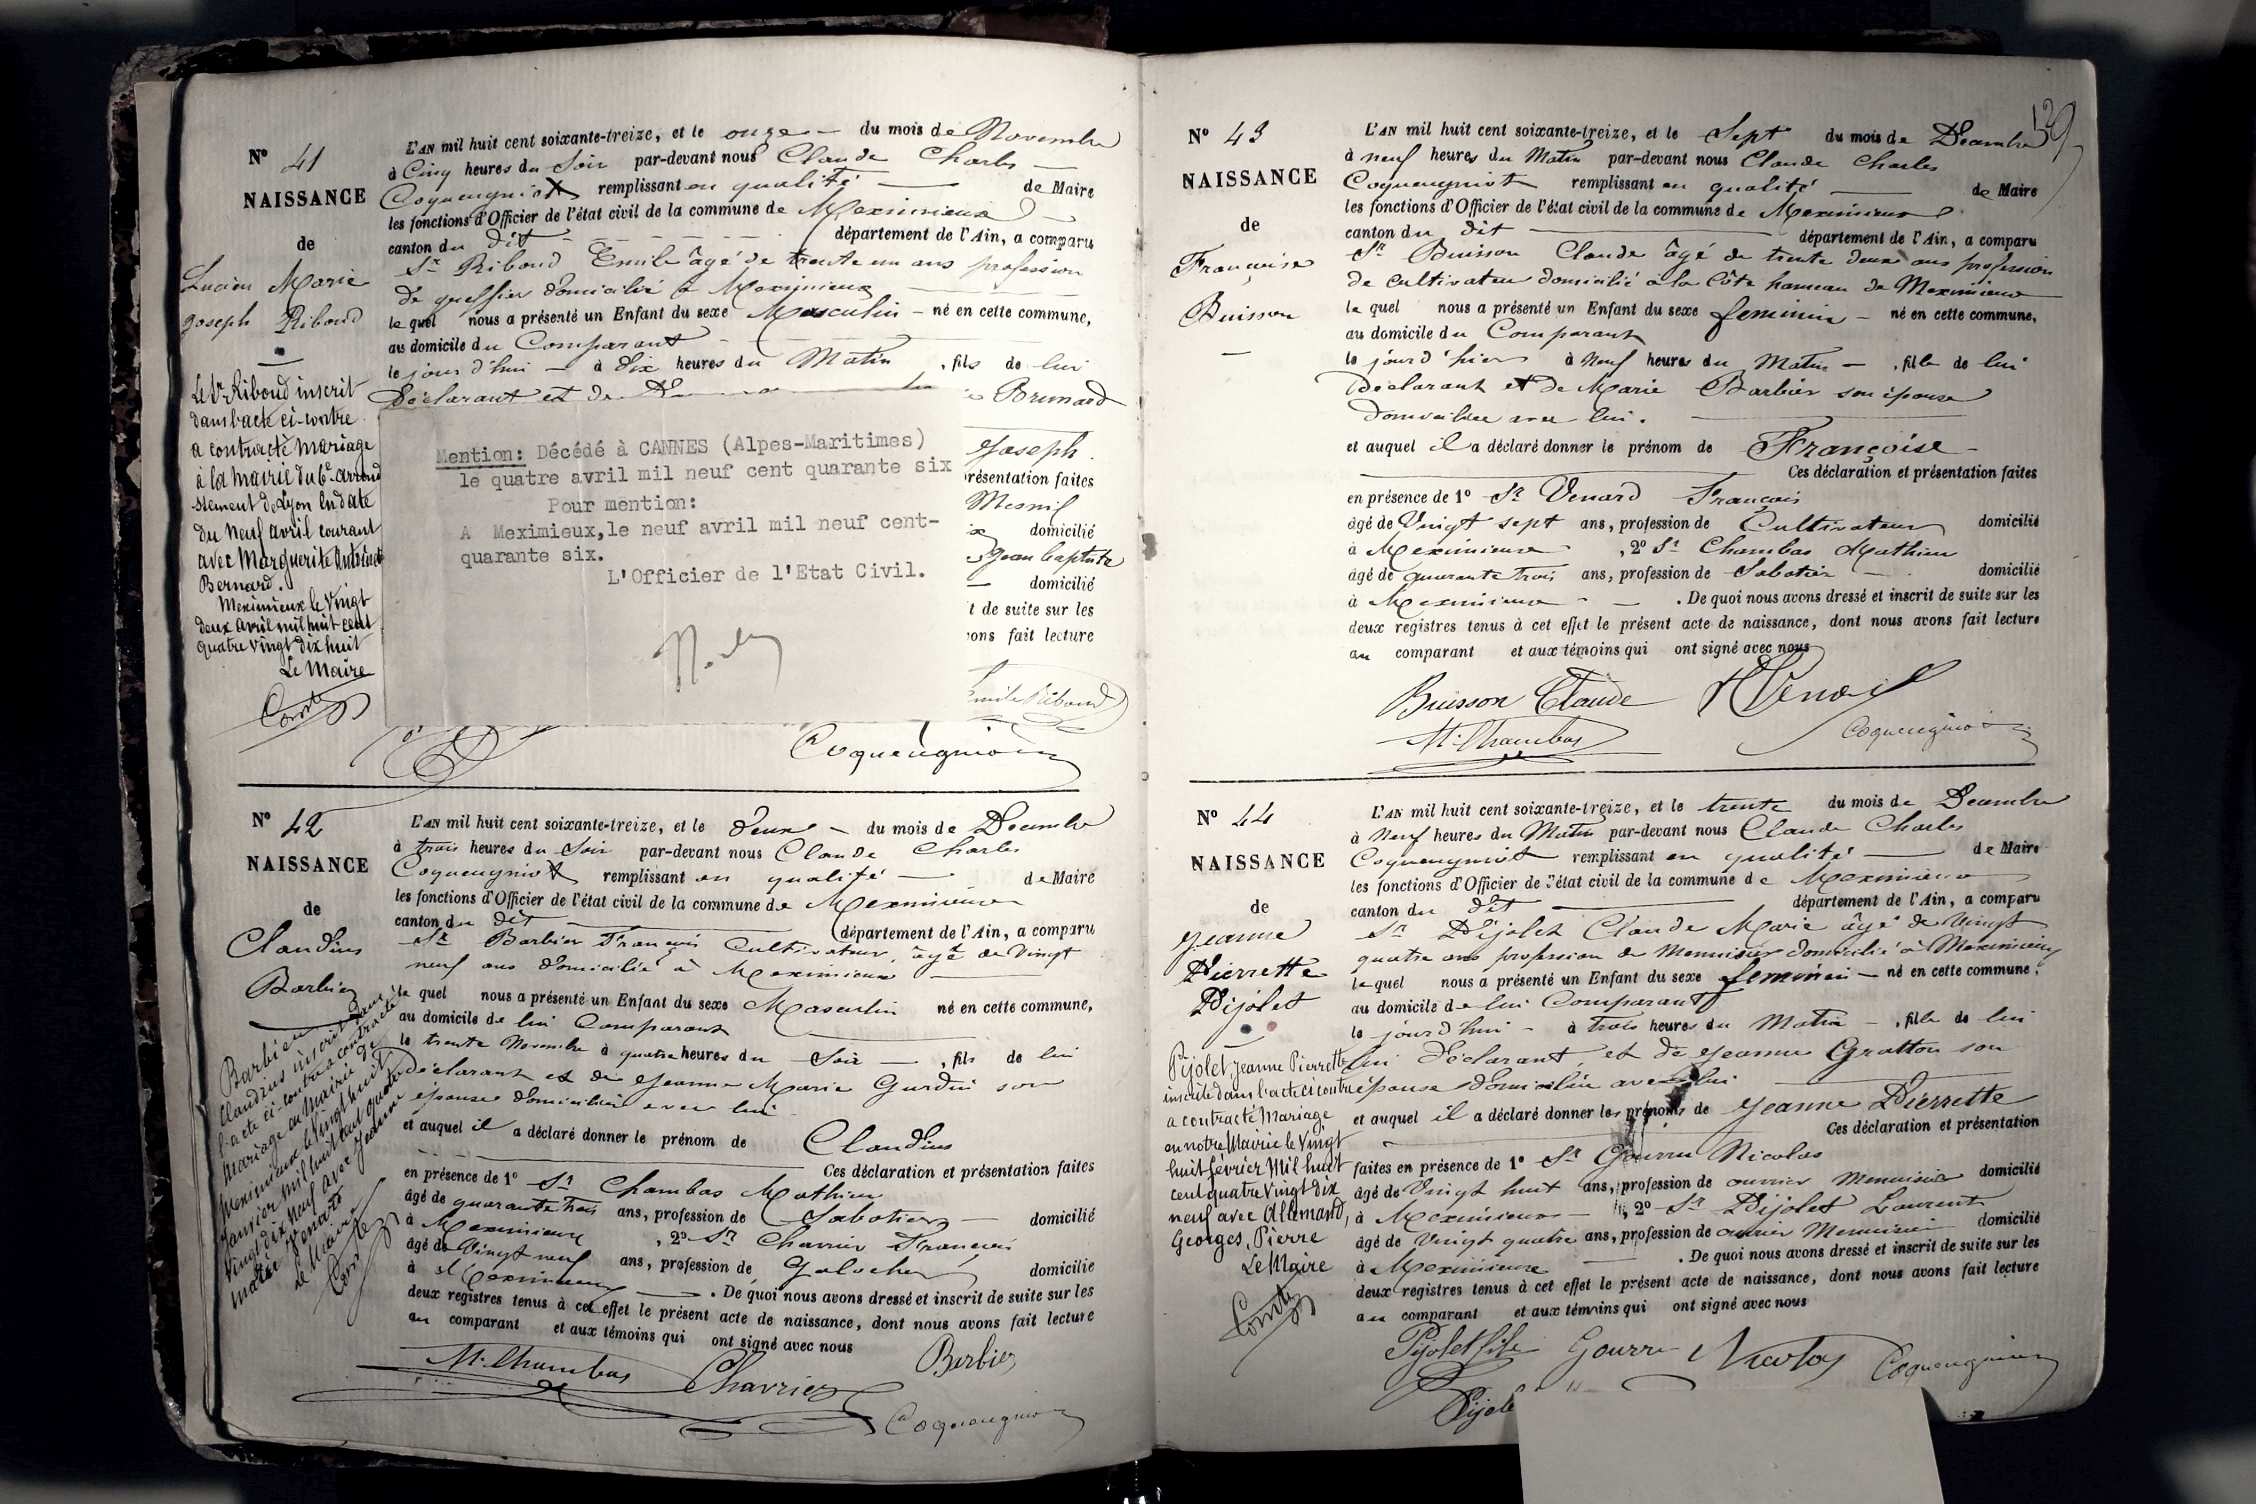 N° 41
NAISSANCE
de
Lucien Marie
Joseph Riboud
Le Sr Riboud inscrit
dans l'acte ci-contre
a contracté mariage
à la mairie du 6e arrond
issement de Lyon en date
du neuf avril courant
avec Marguerite Antoinette
Bernard.
Meximieux le vingt
deux avril mil huit cent
quatre vingt dix huit
Le Maire
L'AN mil huit cent soixante-treize, et le onze du mois de Novembre
à Cinq heures du Soir par-devant nous Claude Charles
Coqueugniot remplissant en qualité de Maire
les fonctions d'Officier de l'état civil de la commune de Meximieux
canton du dit département de l'Ain, a comparu
Sr Riboud Emile âgé de trente un ans profession
de greffier domicilié à Meximieux
le quel nous a présenté un Enfant du sexe Masculin né en cette commune,
au domicile du Comparant
le jour d'hui à dix heures du Matin, fils de lui
Déclarant et de Brunard
Joseph
présentation faites
Mesnil
domicilié
Jean baptiste
domicilié
t de suite sur les
ons fait lecture
Mention: Décédé à CANNES (Alpes-Maritimes)
le quatre avril mil neuf cent quarante six
Pour mention:
A Meximieux, le neuf avril mil neuf cent-
quarante six.
L'Officier de l'Etat Civil.
Emile Riboud
Coqueugniot
N° 42
NAISSANCE
de
Claudius
Barbier
Barbier
Claudius inscrit dans
l'acte ci-contre a contracté
mariage en mairie de
Meximieux le vingt huit
janvier mil huit cent quatre
vingt dix neuf avec Jeanne
Marie
Le Maire
L'AN mil huit cent soixante-treize, et le deux du mois de Décembre
à trois heures du Soir par-devant nous Claude Charles
Coqueugniot remplissant en qualité de Maire
les fonctions d'Officier de l'état civil de la commune de Meximieux
canton du dit département de l'Ain, a comparu
Sr Barbier François Cultivateur, âgé de Vingt
neuf ans domicilié à Meximieux
le quel nous a présenté un Enfant du sexe Masculin né en cette commune,
au domicile de lui Comparant
le trente Novembre à quatre heures du Soir, fils de lui
Déclarant et de Jeanne Marie son
épouse domiciliée avec lui
et auquel il a déclaré donner le prénom de Claudius
Ces déclaration et présentation faites
en présence de 1° Sr Chambas Mathieu
âgé de quarante trois ans, profession de Sabotier domicilié
à Meximieux, 2° Sr Charrier François
âgé de Vingt neuf ans, profession de Galocher domicilié
à Meximieux. De quoi nous avons dressé et inscrit de suite sur les
deux registres tenus à cet effet le présent acte de naissance, dont nous avons fait lecture
au comparant et aux témoins qui ont signé avec nous
M. Chambas Charrier Barbier
Coqueugniot
N° 43
NAISSANCE
de
Françoise
Buisson
L'AN mil huit cent soixante-treize, et le Sept du mois de Décembre
à neuf heures du Matin par-devant nous Claude Charles
Coqueugniot remplissant en qualité de Maire
les fonctions d'Officier de l'état civil de la commune de Meximieux
canton du dit département de l'Ain, a comparu
Sr Buisson Claude âgé de trente deux ans profession
de cultivateur domicilié à la Côte hameau de Meximieux
le quel nous a présenté un Enfant du sexe feminin né en cette commune,
au domicile du Comparant
le jour d'hier à Neuf heures du Matin, fille de lui
Déclarant et de Marie Barbier son épouse
domiciliée avec lui.
et auquel il a déclaré donner le prénom de Françoise
Ces déclaration et présentation faites
en présence de 1° Sr Venard François
âgé de Vingt sept ans, profession de Cultivateur domicilié
à Meximieux, 2° Sr Chambas Mathieu
âgé de quarante trois ans, profession de Sabotier domicilié
à Meximieux. De quoi nous avons dressé et inscrit de suite sur les
deux registres tenus à cet effet le présent acte de naissance, dont nous avons fait lecture
au comparant et aux témoins qui ont signé avec nous
Buisson Claude Venard
M. Chambas Coqueugniot
N° 44
NAISSANCE
de
Jeanne
Pierrette
Pijolet
Pijolet, Jeanne Pierrette
inscrite dans l'acte ci contre
a contracté Mariage
en notre Mairie le Vingt
huit février Mil huit
cent quatre vingt dix
neuf avec Allemand,
Georges, Pierre
Le Maire
L'AN mil huit cent soixante-treize, et le trente du mois de Décembre
à Neuf heures du Matin par-devant nous Claude Charles
Coqueugniot remplissant en qualité de Maire
les fonctions d'Officier de l'état civil de la commune de Meximieux
canton du dit département de l'Ain, a comparu
Sr Pijolet Claude Marie âgé de Vingt
quatre ans profession de Menuisier domicilié à Meximieux
le quel nous a présenté un Enfant du sexe feminin né en cette commune,
au domicile de lui Comparant
le jour d'hui à trois heures du Matin, fille de lui
lui déclarant et de Jeanne Gratton son
épouse domiciliée avec lui
et auquel il a déclaré donner les prénoms de Jeanne Pierrette
Ces déclaration et présentation
faites en présence de 1° Sr Gourru Nicolas
âgé de Vingt huit ans, profession de ouvrier Menuisier domicilié
à Meximieux, 2° Sr Pijolet Laurent
âgé de Vingt quatre ans, profession de ouvrier Menuisier domicilié
à Meximieux. De quoi nous avons dressé et inscrit de suite sur les
deux registres tenus à cet effet le présent acte de naissance, dont nous avons fait lecture
au comparant et aux témoins qui ont signé avec nous
Pijolet fils Gourru Nicolas Coqueugniot